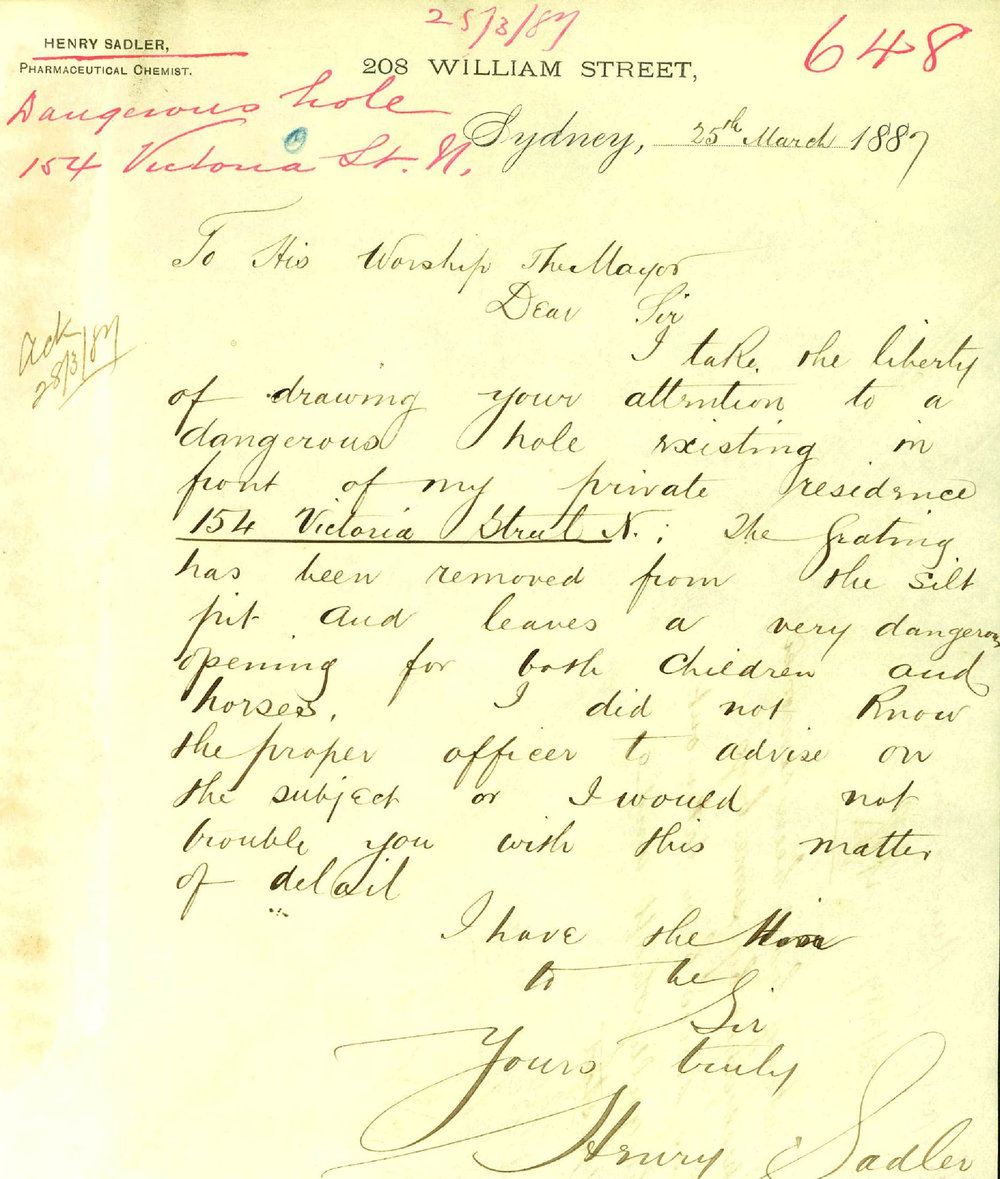 25/3/87
648
HENRY SADLER,
PHARMACEUTICAL CHEMIST.
208 WILLIAM STREET,
Dangerous hole
154 Victoria St. N.
Sydney, 25th March 1887
To His Worship The Mayor
Dear Sir
Ack
28/3/87
I take the liberty
of drawing your attention to a
dangerous hole existing in
front of my private residence
154 Victoria Street N.; The grating
has been removed from the silt
pit and leaves a very dangerous
opening for both children and
horses. I did not know
the proper officer to advise on
the subject or I would not
trouble you with this matter
of detail
I have the Honor
to be
Sir
Yours truly
Henry Sadler